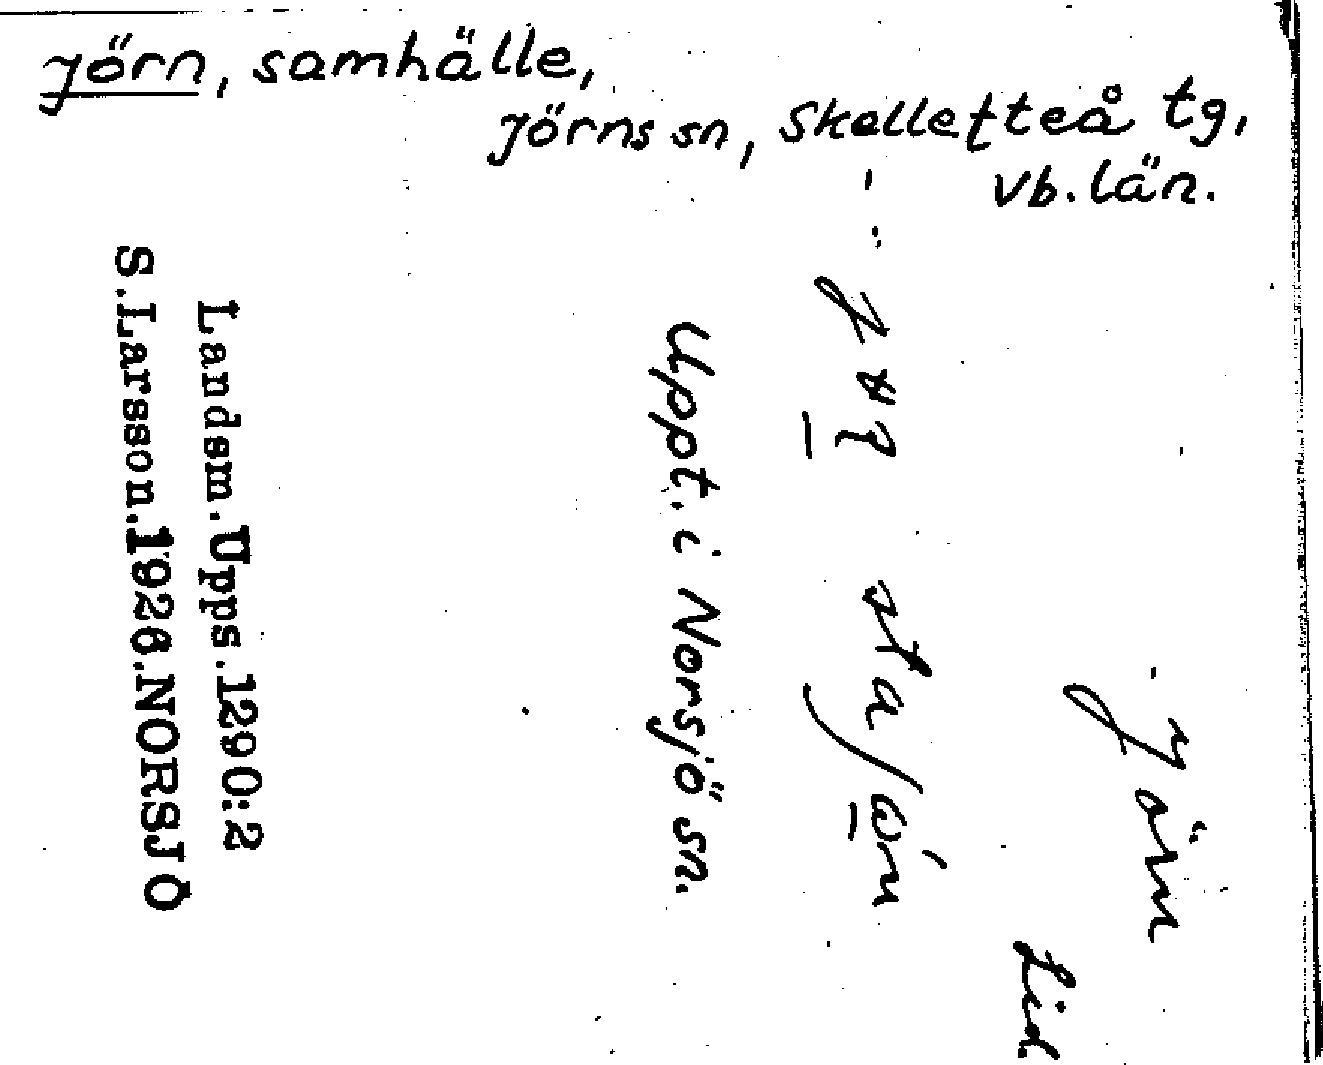 Jörn, samhälle,
Jörns sn, Skellefteå tg,
Vb. län.
Jörn
Lid.
Uppt. i Norsjö sn.
Landsm.Upps.1290:2
S.Larsson.1926.NORSJÖ